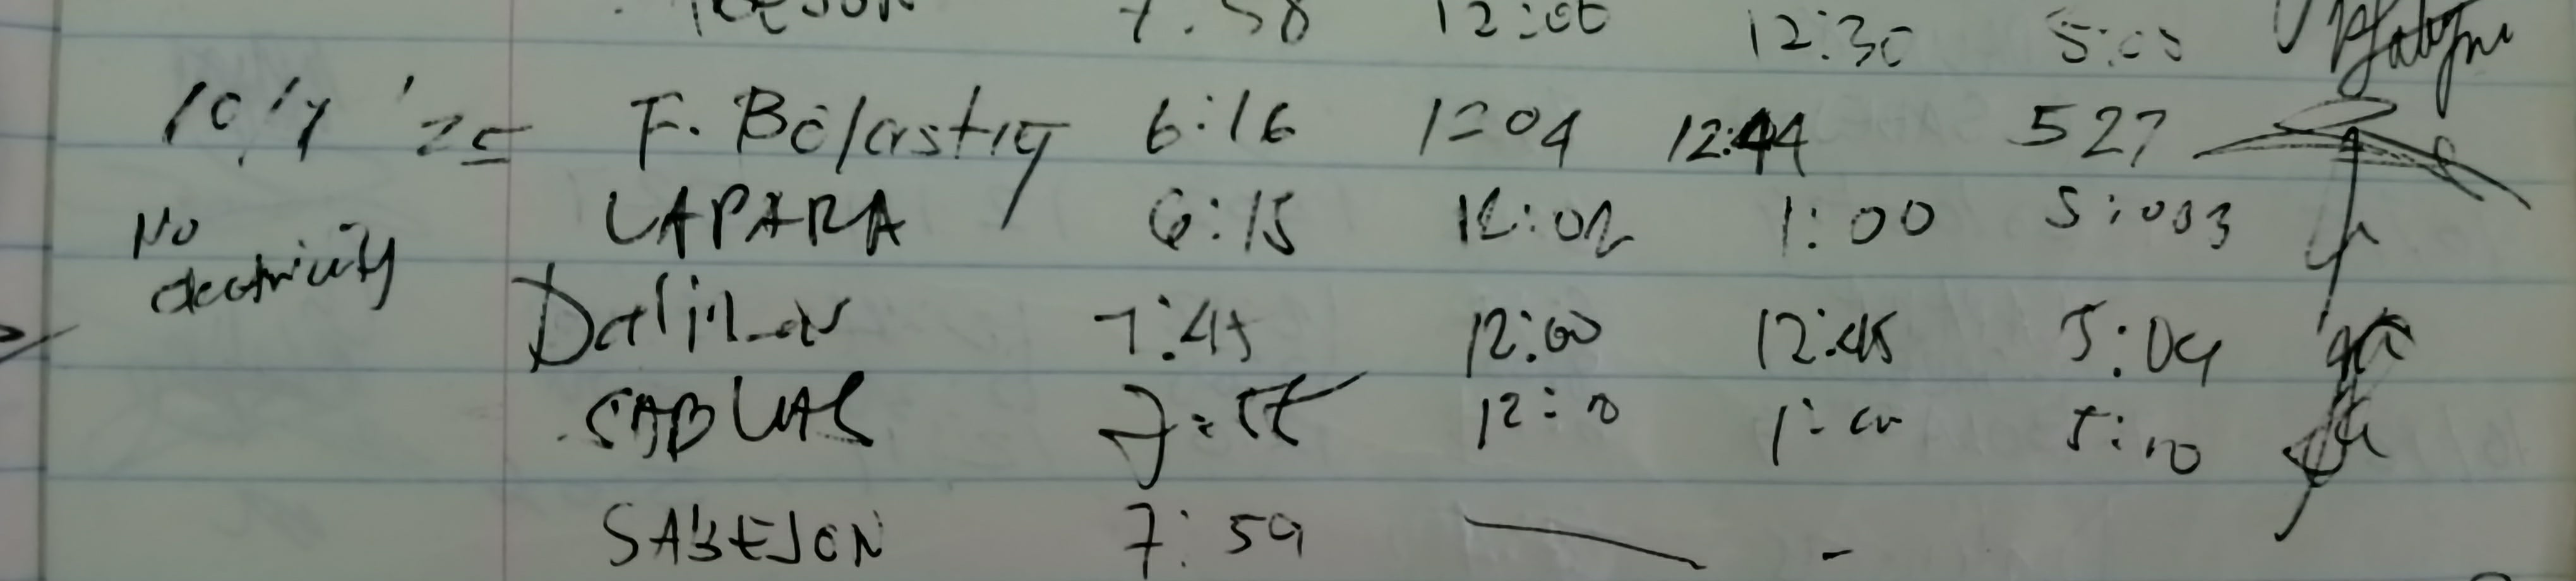 7:58 12:00 12:30 5:00
10/7 '25 F. 6:16 12 04 12:44 527
LAPARA 6:15 12:02 1:00 5:003
No
electricity
7:45 12:00 12:45 5:04
SABLAS 7:55 12:10 1:00 5:10
SABEJON 7:59 — -